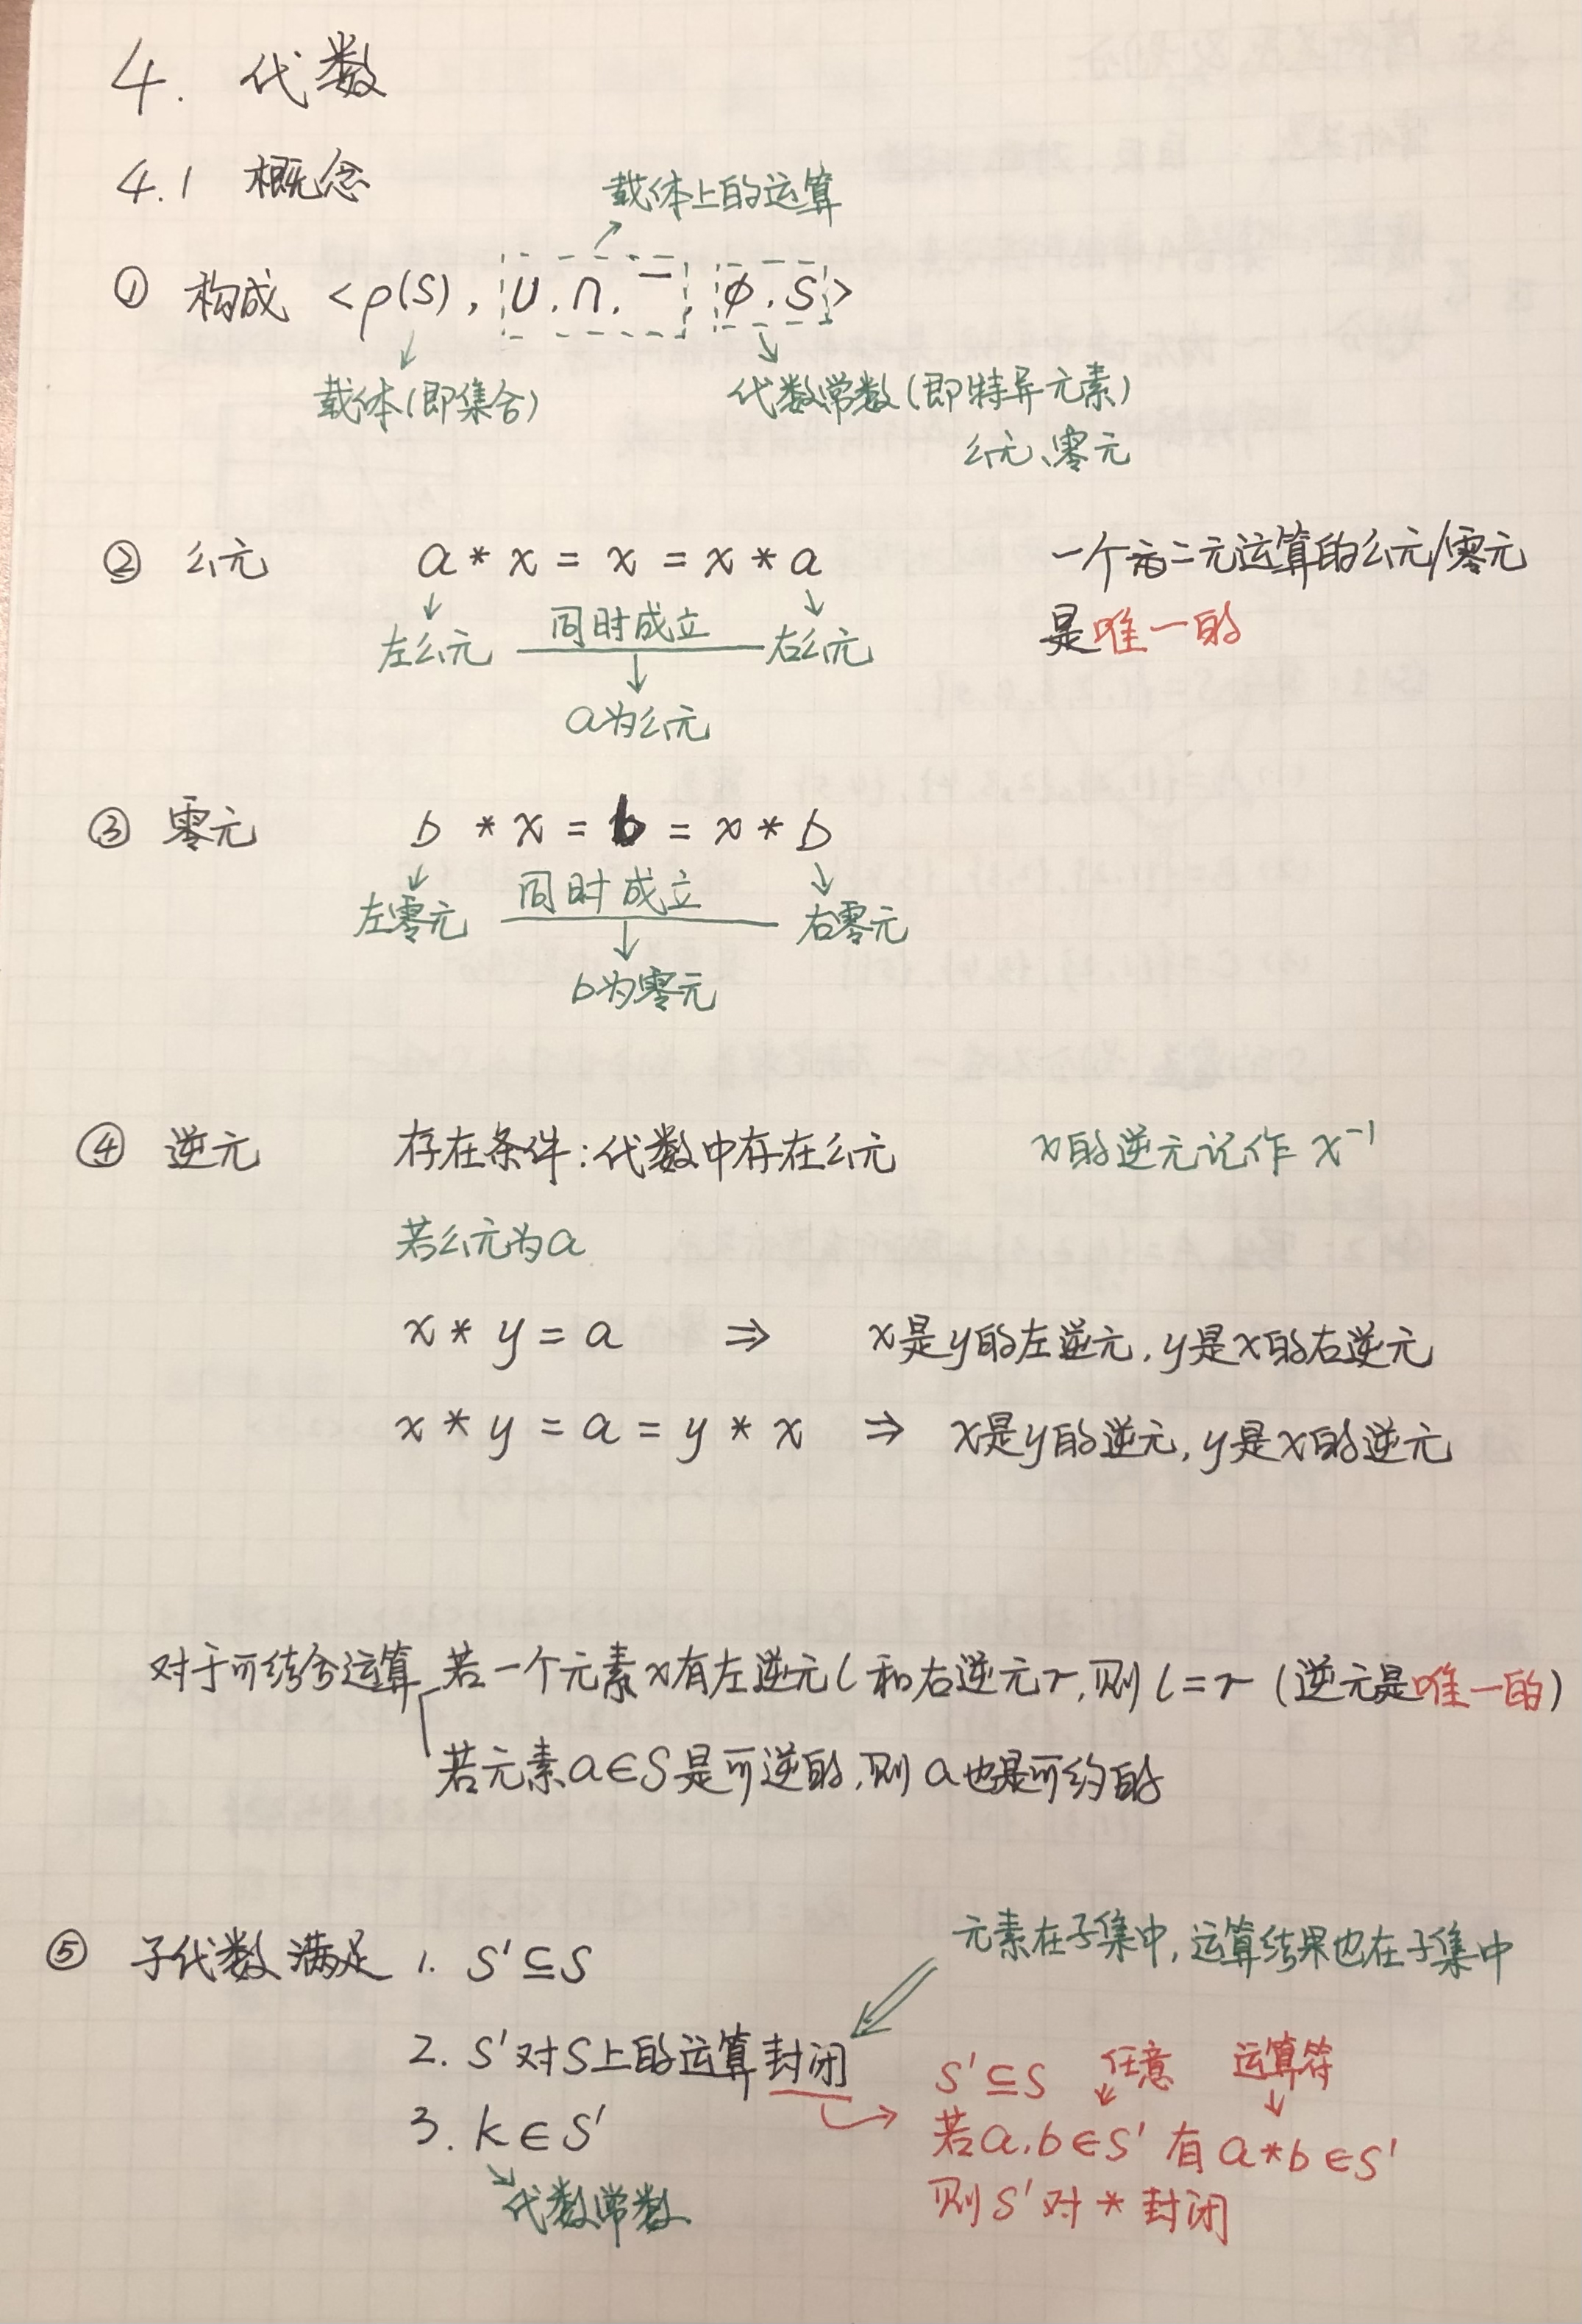 4. 代数
4.1 概念
载体上的运算
① 构成 <ρ(S), ∪, ∩, ‾, ϕ, S>
载体(即集合) 代数常数(即特异元素)
幺元、零元
② 幺元 a * x = x = x * a 一个二元运算的幺元/零元
左幺元 同时成立 右幺元 是唯一的
a为幺元
③ 零元 b * x = b = x * b
左零元 同时成立 右零元
b为零元
④ 逆元 存在条件:代数中存在幺元 x的逆元记作 x⁻¹
若幺元为a
x * y = a ⇒ x是y的左逆元, y是x的右逆元
x * y = a = y * x ⇒ x是y的逆元, y是x的逆元
对于可结合运算 若一个元素x有左逆元l和右逆元r, 则 l=r (逆元是唯一的)
若元素a∈S是可逆的, 则a也是可约的
元素在子集中, 运算结果也在子集中
⑤ 子代数满足 1. S'⊆S
2. S'对S上的运算封闭
S'⊆S 任意 运算符
3. k∈S' 若a,b∈S' 有 a*b∈S'
代数常数 则S'对*封闭